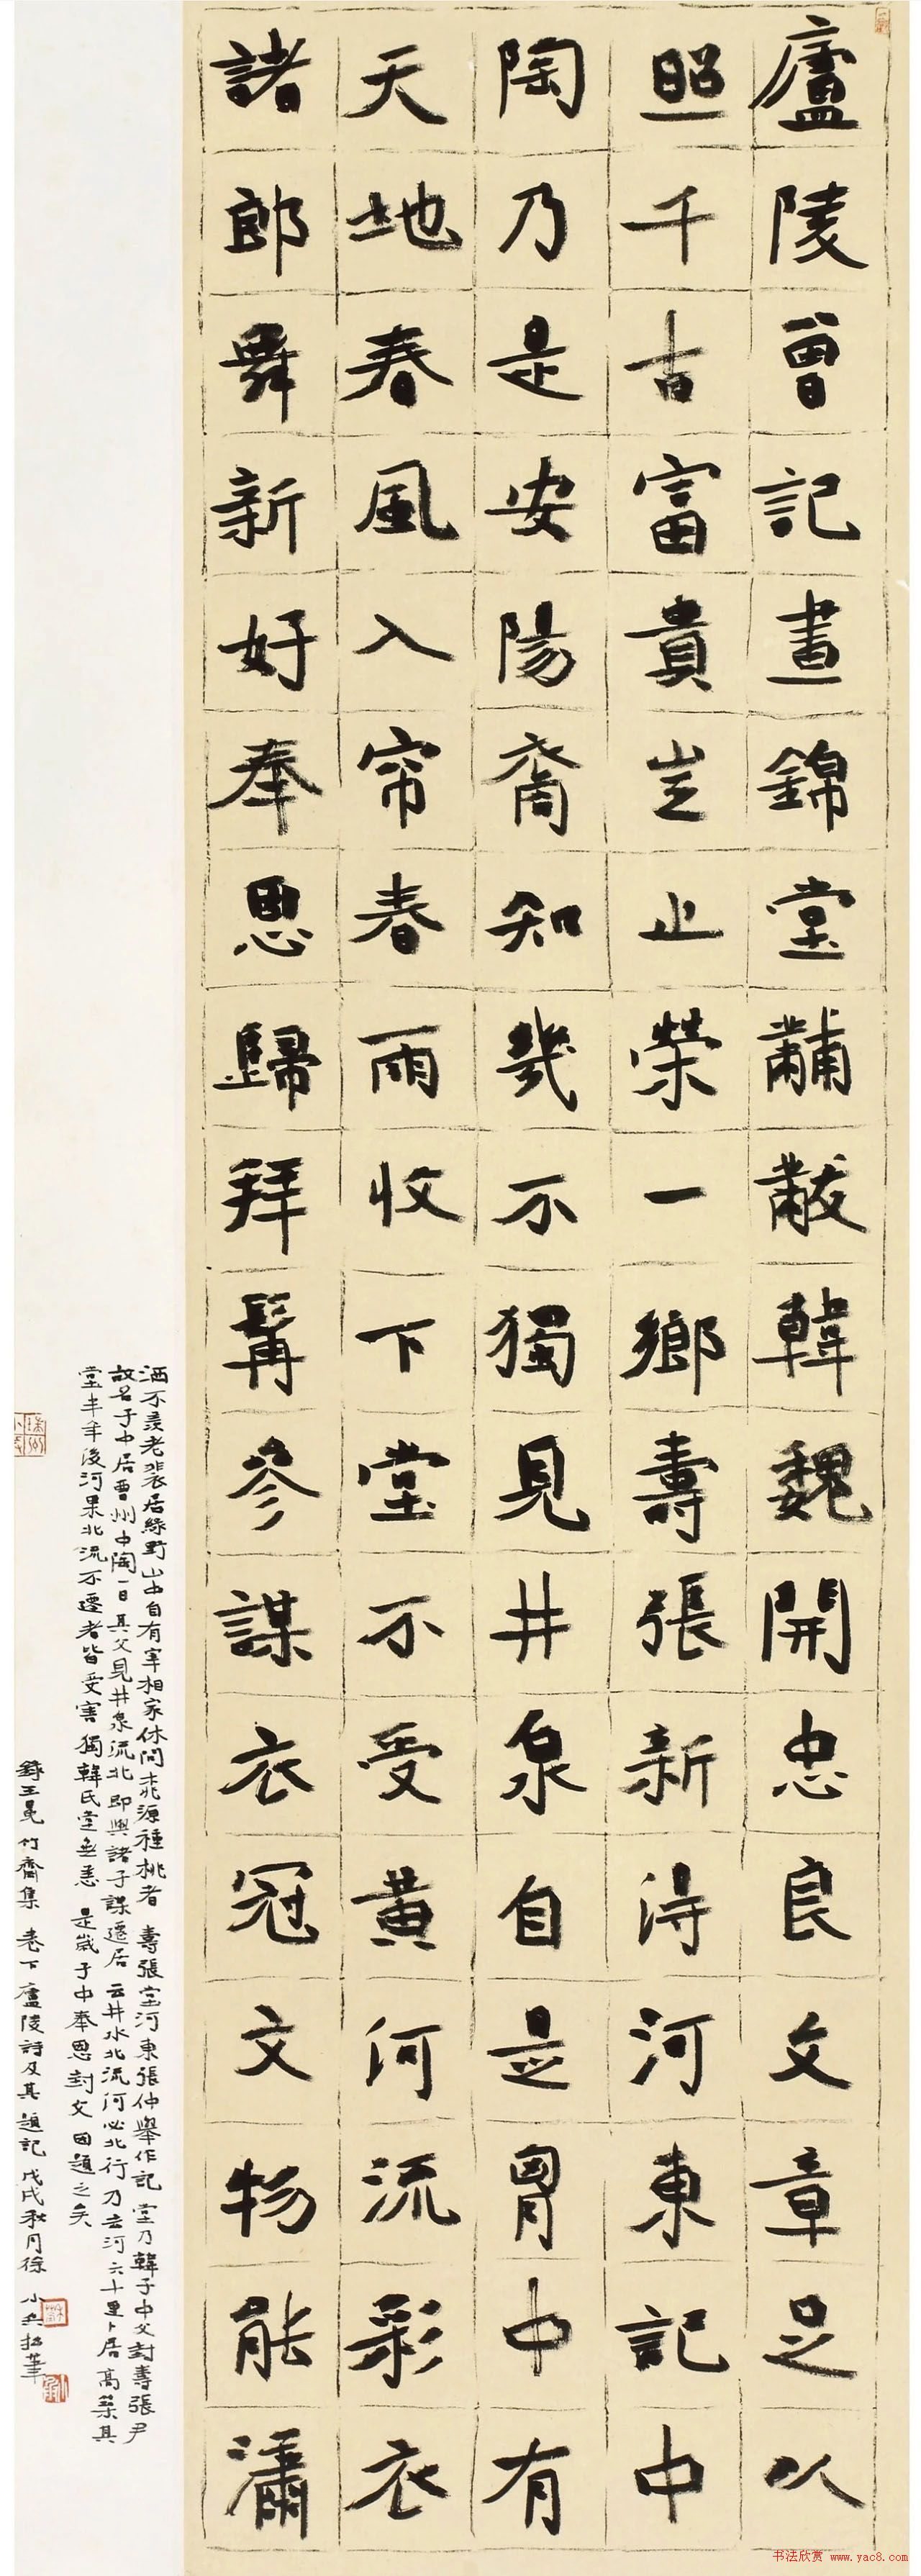 廬陵曾記晝錦堂黼黻韓魏開忠良文章足以
照千古富貴豈止榮一鄉壽張新得河東記中
陶乃是安陽裔知幾不獨見井泉自是胷中有
天地春風入帘春雨收下堂不受黃河流彩衣
諸郎舞新好奉恩歸拜髯參謀衣冠文物能瀟
洒不羨老裴居綠野山中自有宰相家休問桃源種桃者 壽張堂河東張仲舉作記 堂乃韓子中父封壽張尹
故名子中居曹州中陶一日其父見井泉流北即與諸子謀遷居云井水北流河必北行乃去河六十里卜居高築其
堂半年後河果北流不遷者皆受害獨韓氏堂無恙 是歲子中奉恩封父 因題之矣
錄王冕竹齋集卷下廬陵詩及其題記 戊戌秋月徐小兵拈筆
书法欣赏 www.yac8.com